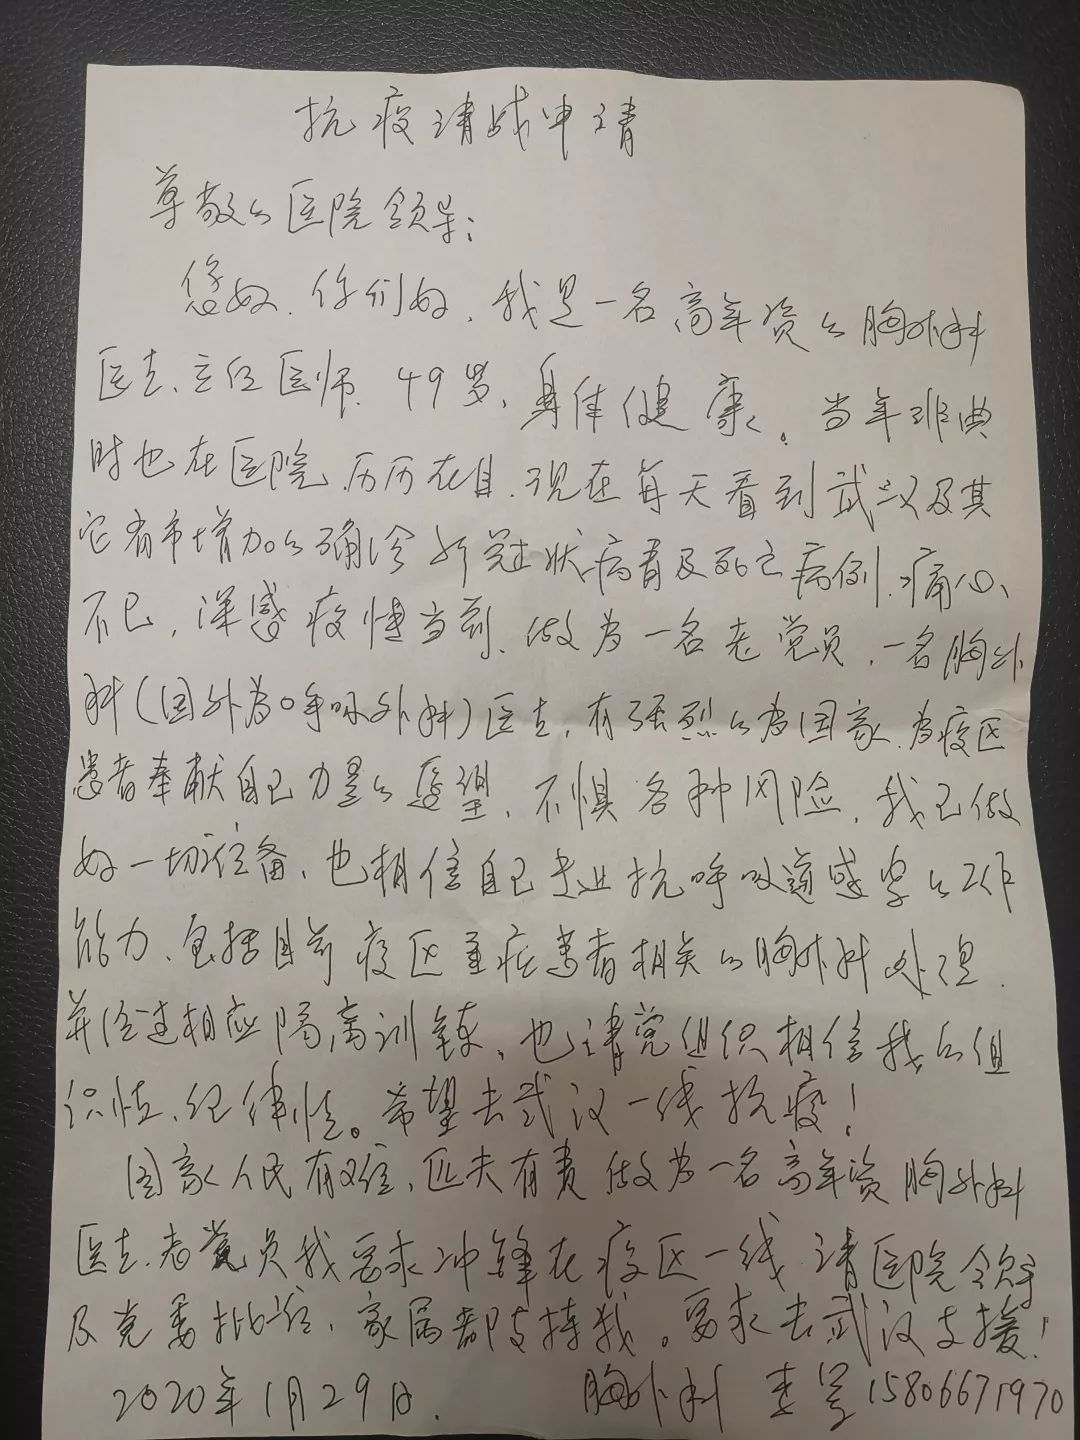 抗疫请战申请
尊敬的医院领导：
您好、你们好，我是一名高年资的胸外科
医生、主任医师、49岁、身体健康。当年非典
时也在医院，历历在目，现在每天看到武汉及其
它省市增加的确诊新冠状病毒及死亡病例，痛心
不已，深感疫情当前，做为一名老党员，一名胸外
科（国外为呼吸外科）医生，有强烈的为国家、为疫区
患者奉献自己力量的愿望，不惧各种风险，我已做
好一切准备，也相信自己专业抗呼吸道感染的工作
能力、包括目前疫区重症患者相关的胸外科处理，
并经过相应隔离训练，也请党组织相信我的组
织性、纪律性。希望去武汉一线抗疫！
国家人民有难，匹夫有责做为一名高年资胸外科
医生、老党员我要求冲锋在疫区一线，请医院领导
及党委批准，家属都支持我。要求去武汉支援！
2020年1月29日. 胸外科 李 15806671970